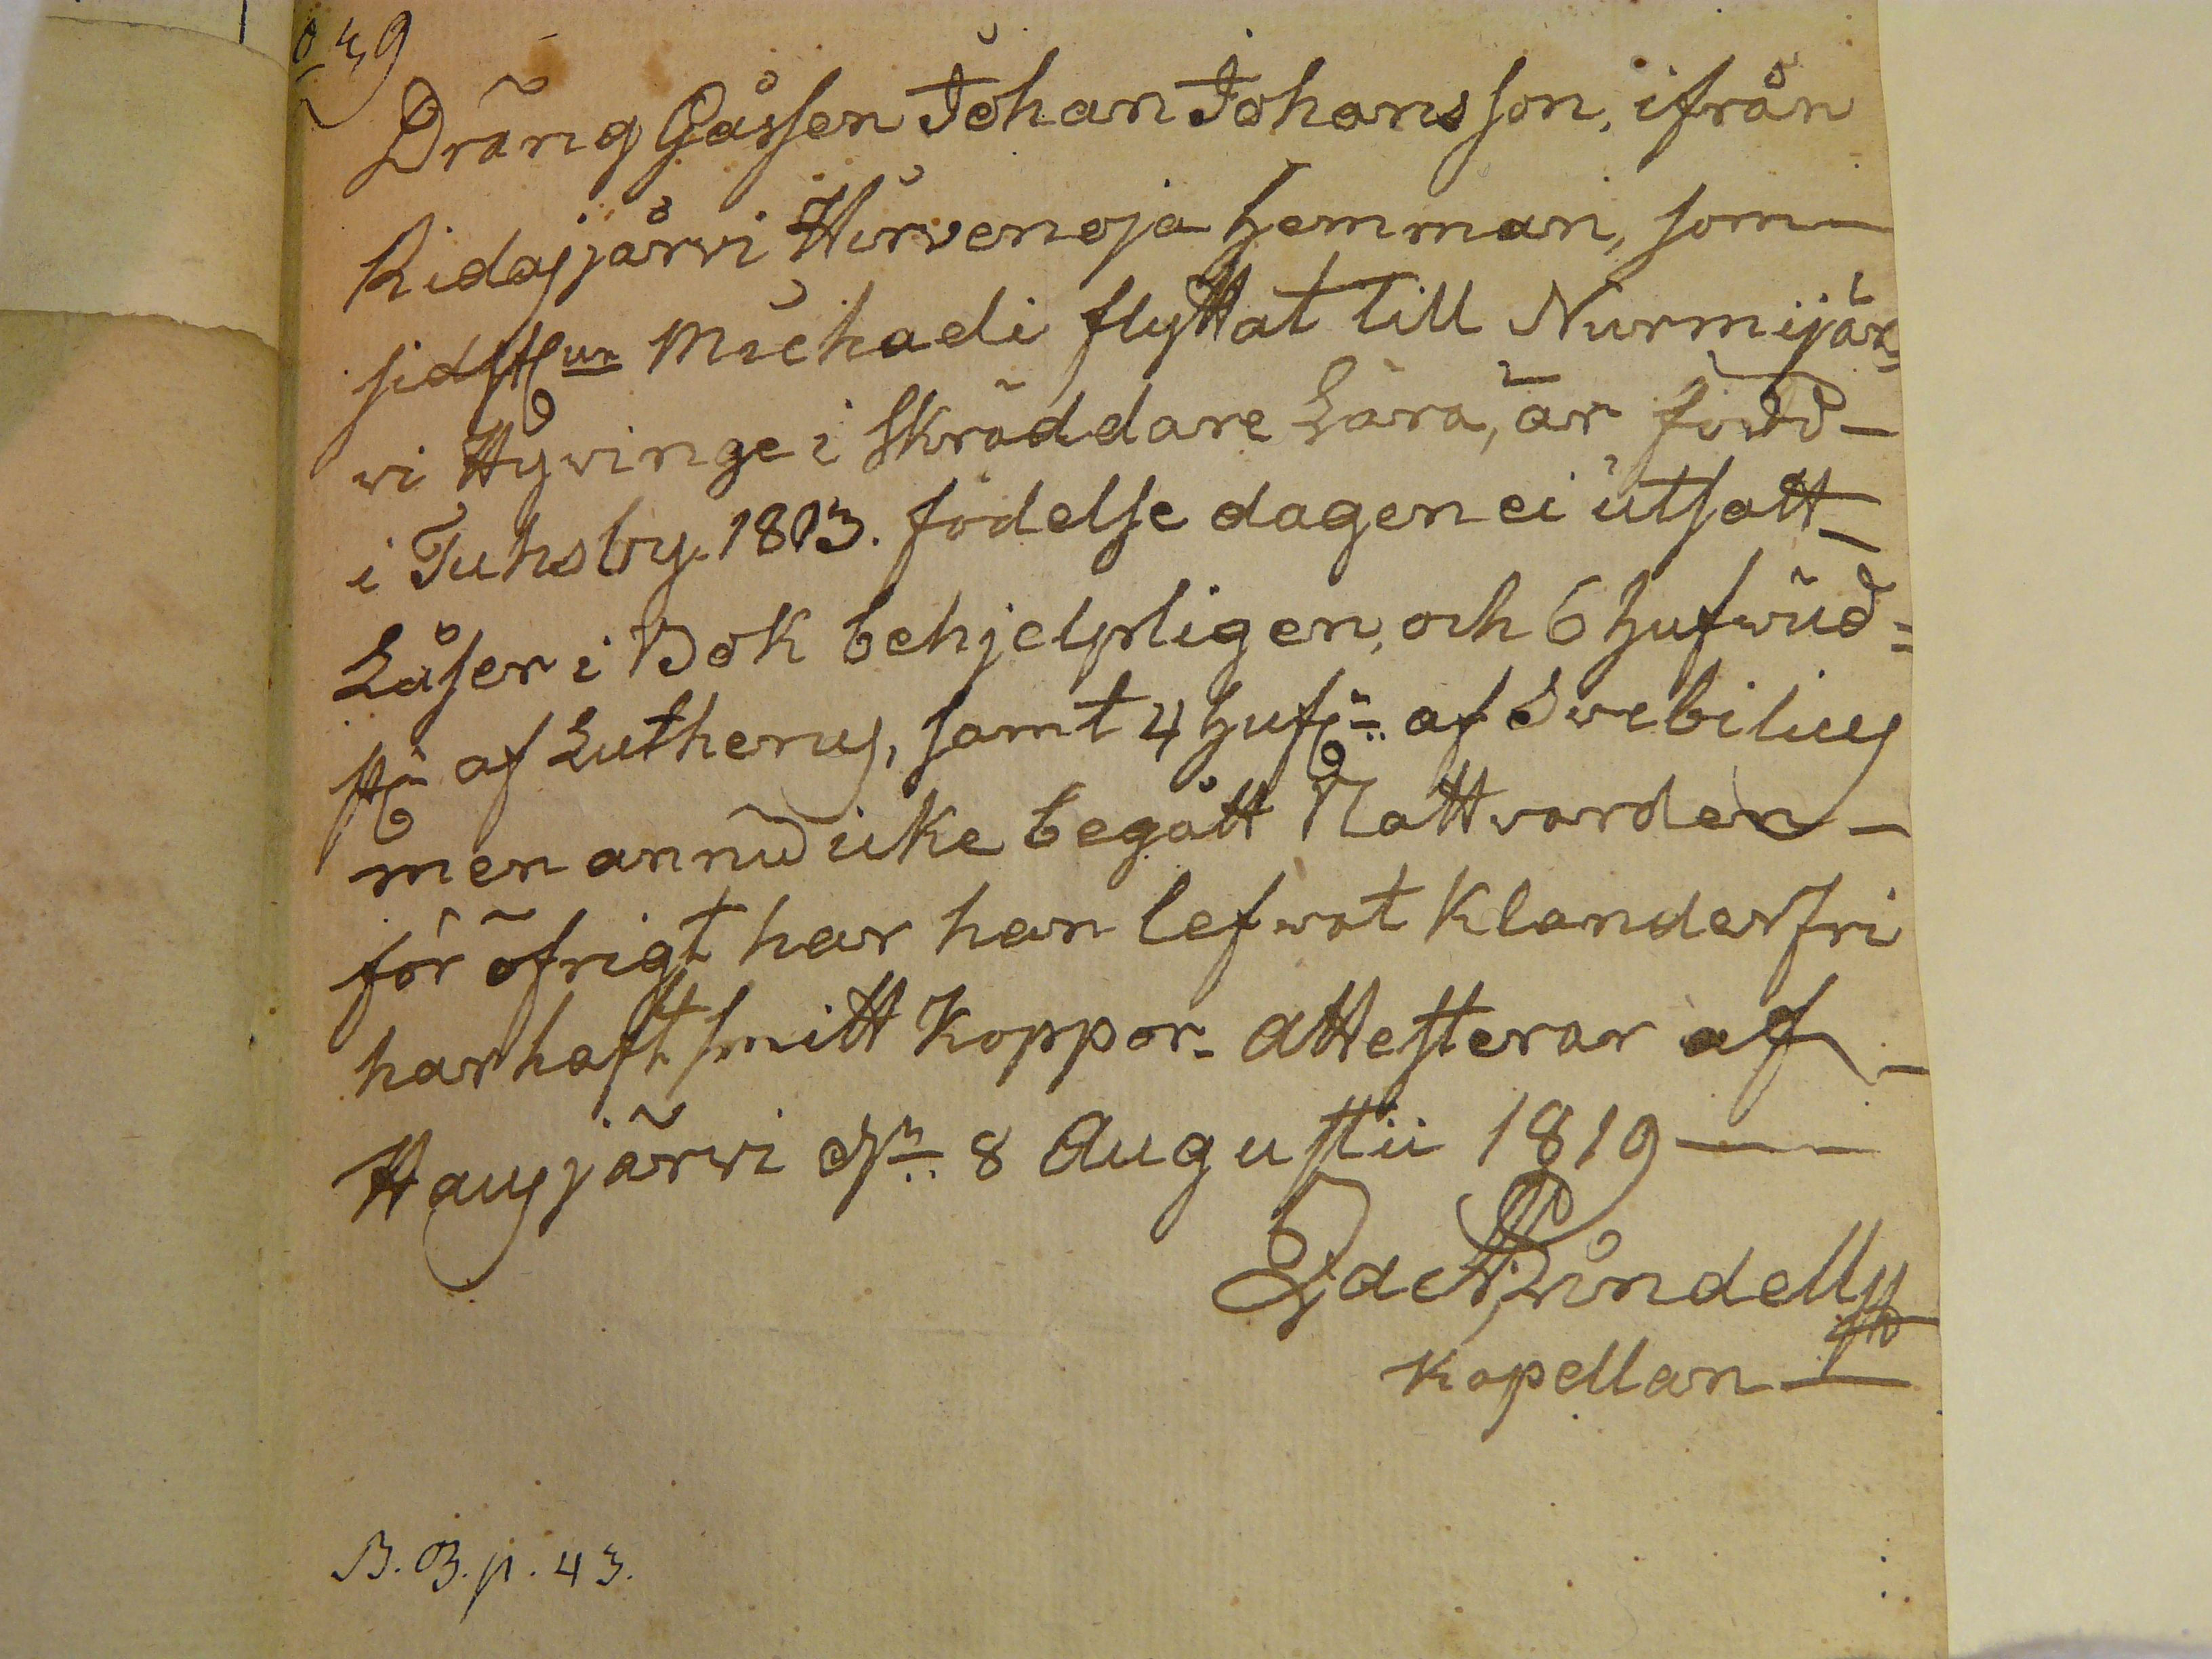 49
Dräng Gåssen Johan Johansson, ifrån
Ridasjärvi Hirvenoja hemman, som
sidst Michaeli flyttat till Nurmijär,
vi Hyvinge i Skräddare Lära, är född
i Tuhsby 1803. födelse dagen ei utsatt
Läser i Bok behjelpligen, och 6 hufwud=
st af Lutherus, samt 4 huf af Svebilius
men ännu icke begått Nattvarden
för öfrigt har han lefwat Klanderfri
har haft smitt Koppor. Attesterar af
Hausjärvi dn 8 Augustii 1819
Kapellan
B.B.p.43.